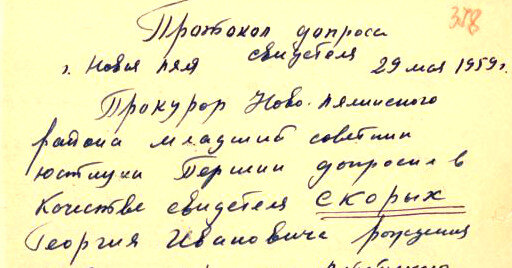 358
Протокол допроса
свидетеля
г. Новая ляля 29 мая 1959 г.
Прокурор Ново-лялинского
района младший советник
юстиции Першин допросил в
качестве свидетеля Скорых
Георгия Ивановича рождения